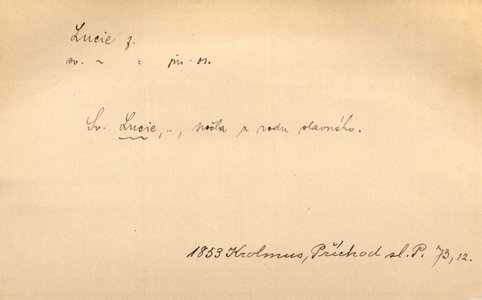 Lucie ž.
sv. ~ : jm. os.
Sv. Lucie, .., pošla z rodu slavného.
1853 Krolmus, Příchod sl. P. 73, 12.